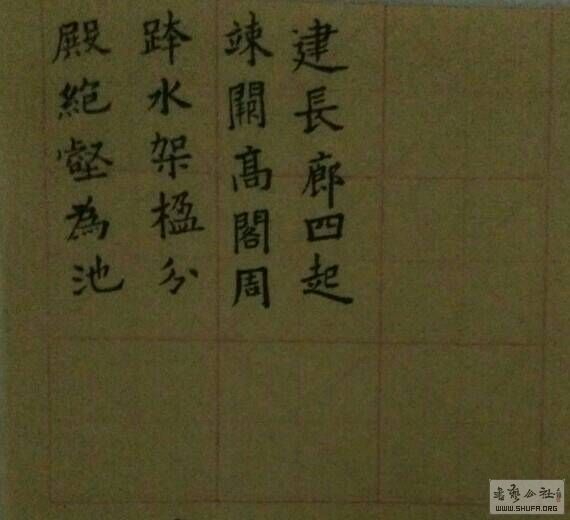 殿絕壑為池
跨水架楹分
竦闕髙閣周
建長廊四起
書藝公社
WWW.SHUFA.ORG